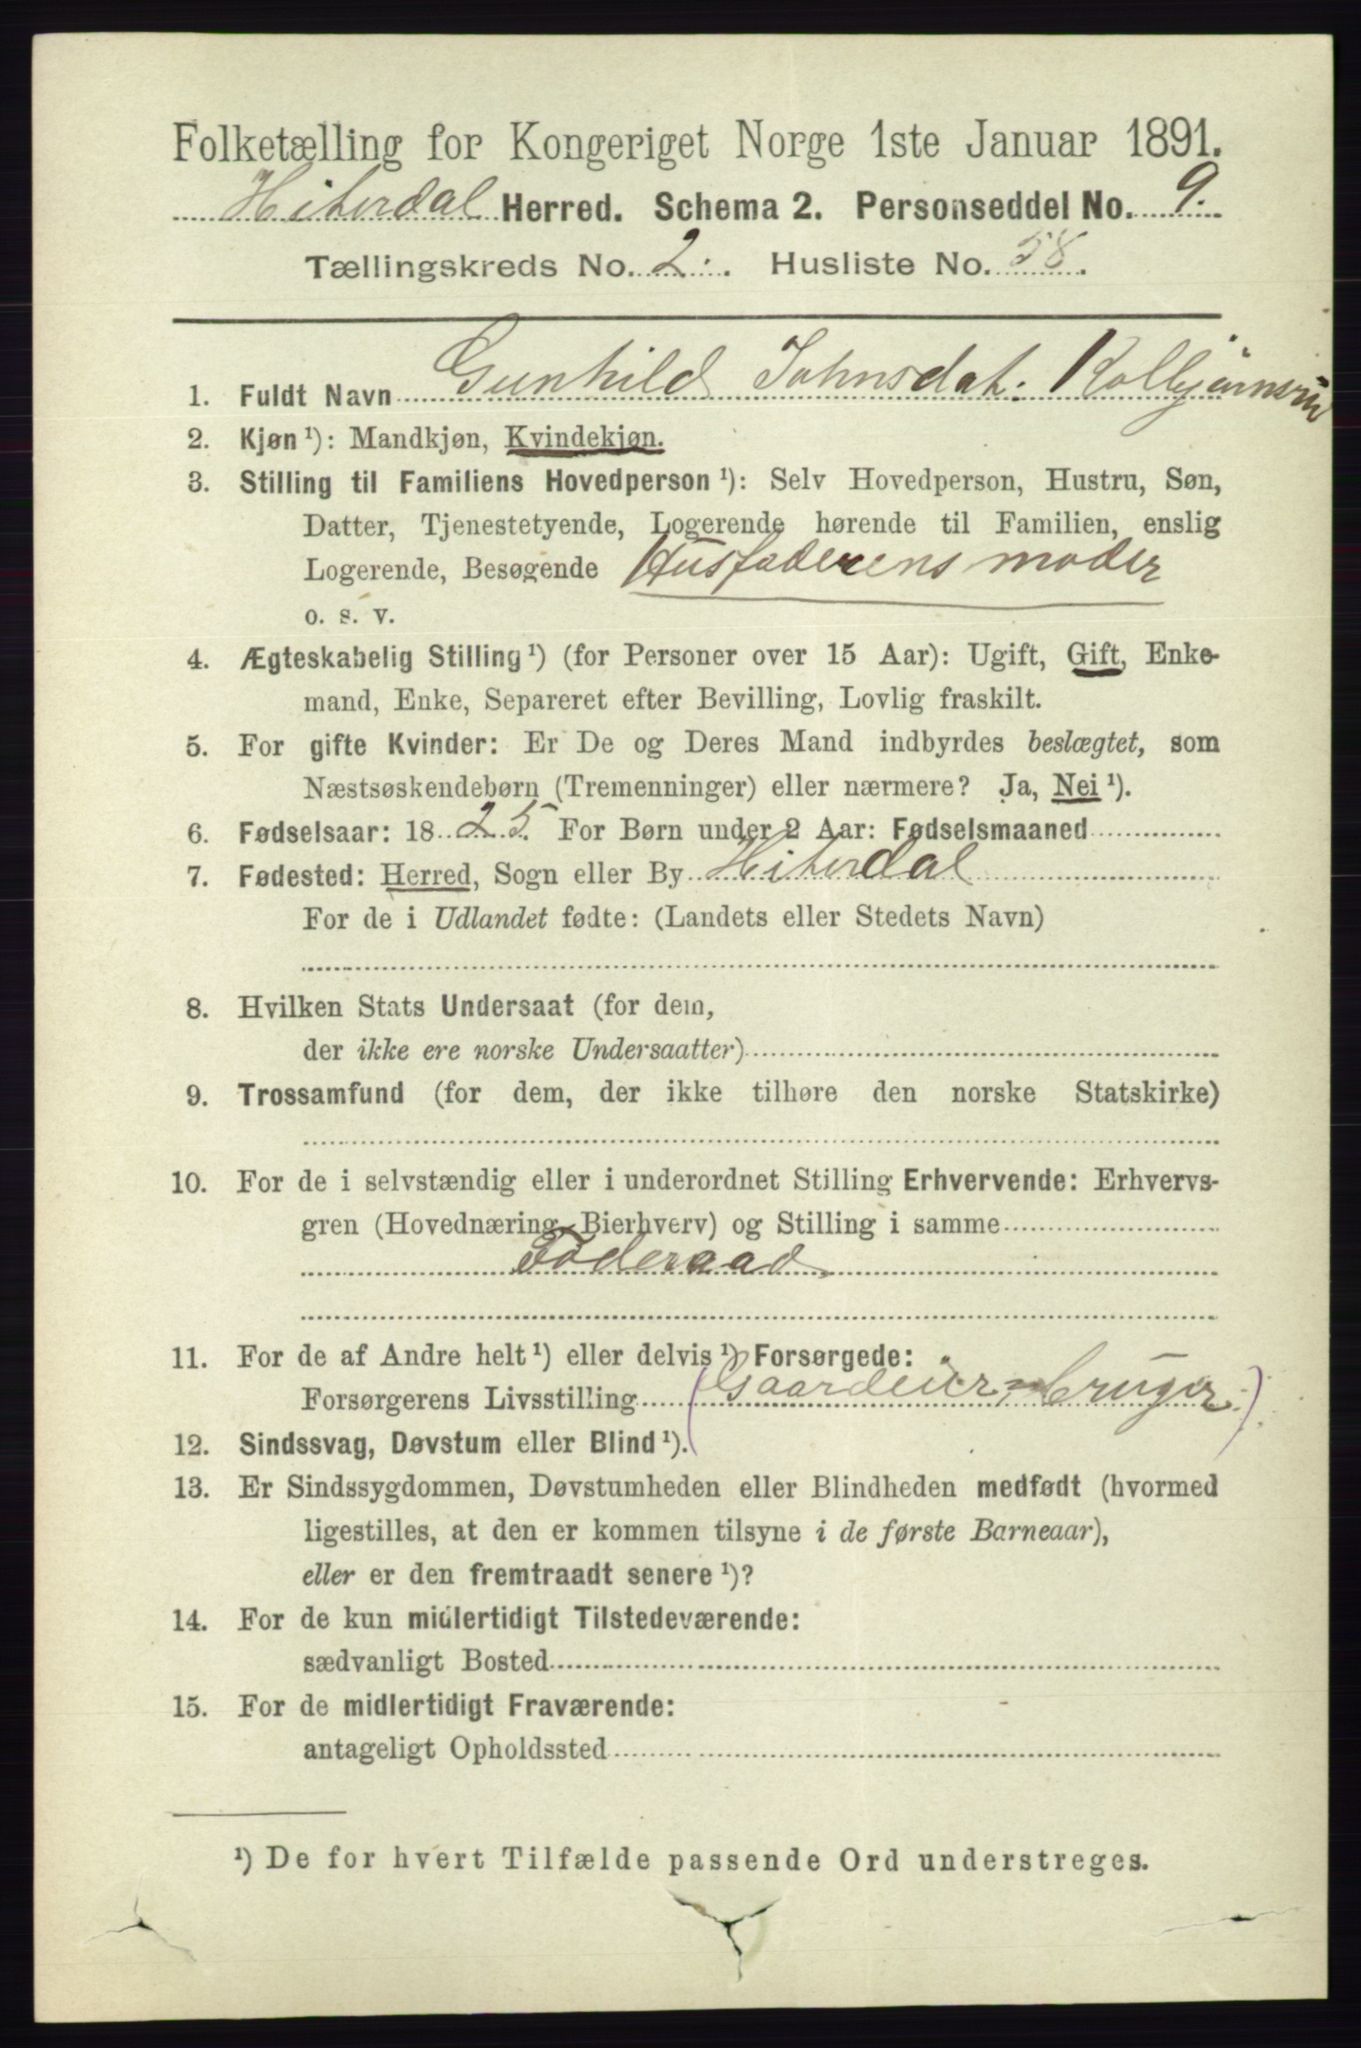 Folketælling for Kongeriget Norge 1ste Januar 1891.
Hiterdal Herred. Schema 2. Personseddel No. 9.
Tællingskreds No. 2. Husliste No. 58.
1. Fuldt Navn Gunhild Johnsdat. Kolbjørnsrud
2. Kjøn ¹): Mandkjøn, Kvindekjøn.
3. Stilling til Familiens Hovedperson ¹): Selv Hovedperson, Hustru, Søn,
Datter, Tjenestetyende, Logerende hørende til Familien, enslig
Logerende, Besøgende Husfaderens moder
o. s. v.
4. Ægteskabelig Stilling ¹) (for Personer over 15 Aar): Ugift, Gift, Enke-
mand, Enke, Separeret efter Bevilling, Lovlig fraskilt.
5. For gifte Kvinder: Er De og Deres Mand indbyrdes beslægtet, som
Næstsøskendebørn (Tremenninger) eller nærmere? Ja, Nei ¹).
6. Fødselsaar: 18 25. For Børn under 2 Aar: Fødselsmaaned
7. Fødested: Herred, Sogn eller By Hiterdal
For de i Udlandet fødte: (Landets eller Stedets Navn)
8. Hvilken Stats Undersaat (for dem,
der ikke ere norske Undersaatter)
9. Trossamfund (for dem, der ikke tilhøre den norske Statskirke)
10. For de i selvstændig eller i underordnet Stilling Erhvervende: Erhvervs-
gren (Hovednæring, Bierhverv) og Stilling i samme
Føderaad
11. For de af Andre helt ¹) eller delvis ¹) Forsørgede:
Forsørgerens Livsstilling (Gaardeier, bruger.)
12. Sindssvag, Døvstum eller Blind ¹).
13. Er Sindssygdommen, Døvstumheden eller Blindheden medfødt (hvormed
ligestilles, at den er kommen tilsyne i de første Barneaar),
eller er den fremtraadt senere ¹)?
14. For de kun midlertidigt Tilstedeværende:
sædvanligt Bosted
15. For de midlertidigt Fraværende:
antageligt Opholdssted
¹) De for hvert Tilfælde passende Ord understreges.